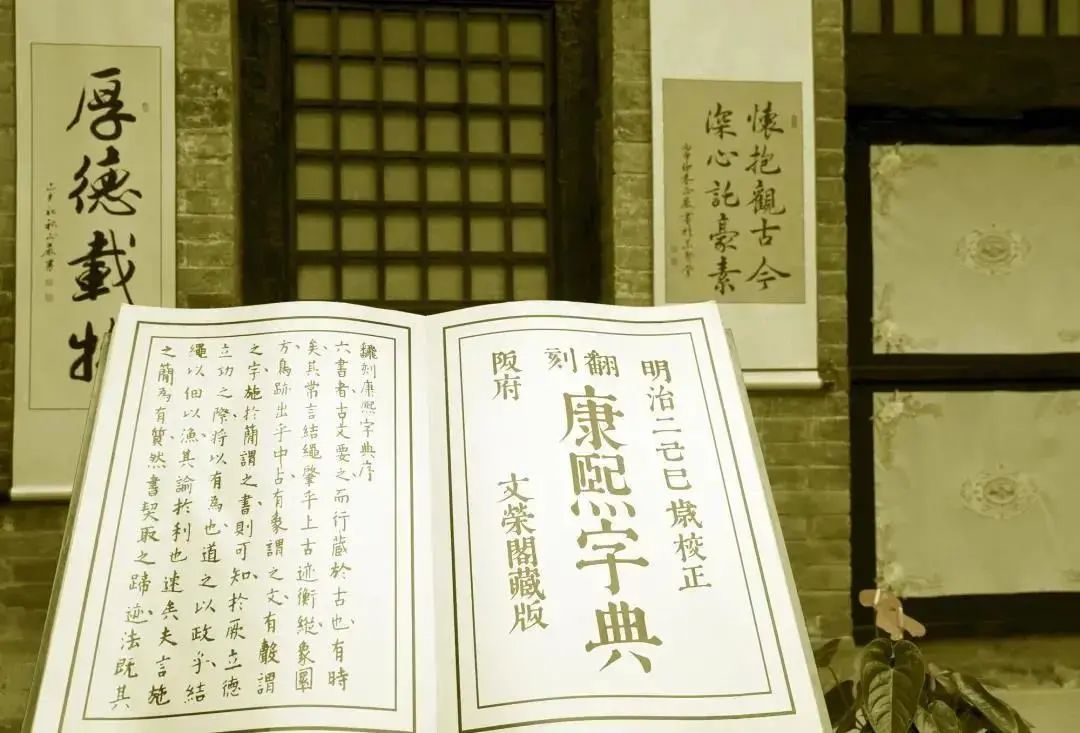 懷抱觀古今
深心託豪素
明治二己巳歲校正
翻刻
康熙字典
阪府
文榮閣藏版
飜刻康熙字典序
六書者古文要之而行蔵於古也有時
矣其常言結繩肇乎上古迹衡縱象圜
方鳥跡出乎中占有象謂之文有聲謂
之字施於簡謂之書則可知於厥立德
立功之際将以有為也道之以政乎結
繩以佃以漁其論於利也速矣夫言施
之簡為有質然書契取之蹄迹法既其
厚德載物